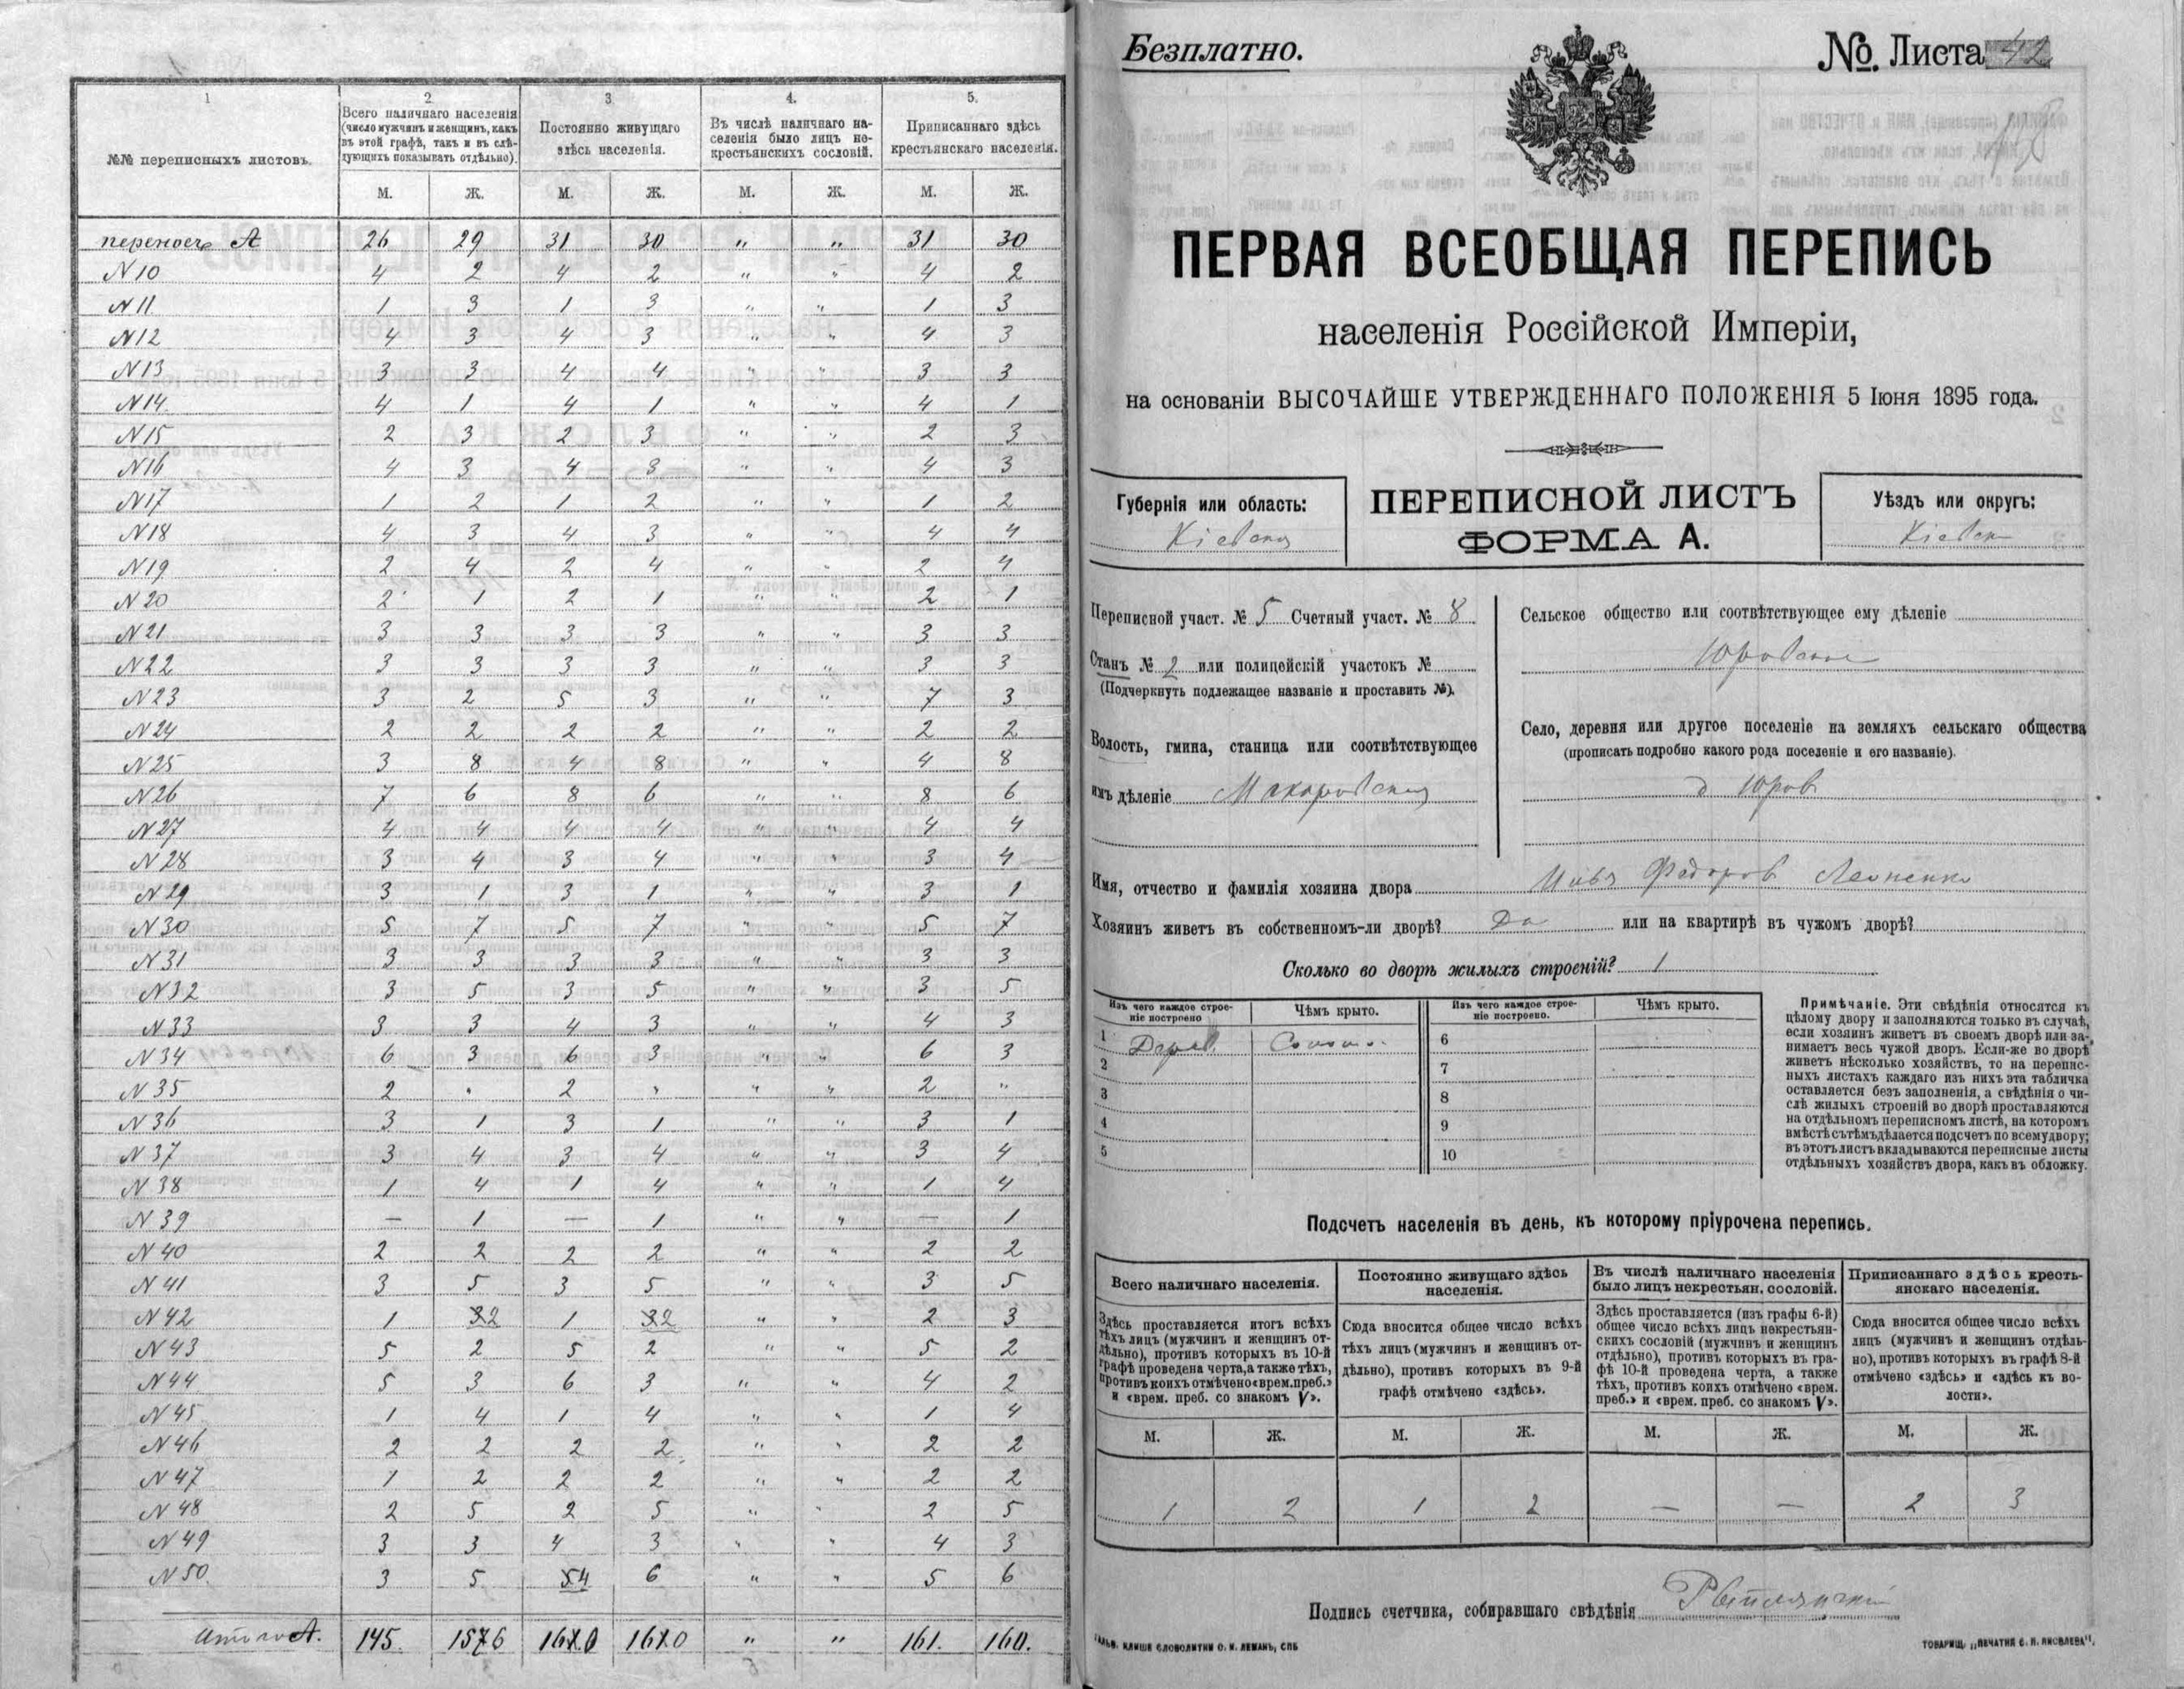 1
2.
3.
4.
5.
№№ переписныхъ листовъ.
Всего наличнаго населенія
(число мужчинъ и женщинъ, какъ
въ этой графѣ, такъ и въ слѣ-
дующихъ показывать отдѣльно).
Постоянно живущаго
здѣсь населенія.
Въ числѣ наличнаго на-
селенія было лицъ не-
крестьянскихъ сословій.
Приписаннаго здѣсь
крестьянскаго населенія.
М. Ж. М. Ж. М. Ж. М. Ж.
переносъ А 26 29 31 30 " " 31 30
N 10 4 2 4 2 " " 4 2
N 11 1 3 1 3 " " 1 3
N 12 4 3 4 3 " " 4 3
N 13 3 3 4 4 " " 3 3
N 14 4 1 4 1 " " 4 1
N 15 2 3 2 3 " " 2 3
N 16 4 3 4 3 " " 4 3
N 17 1 2 1 2 " " 1 2
N 18 4 3 4 3 " " 4 4
N 19 2 4 2 4 " " 2 4
N 20 2 1 2 1 " " 2 1
N 21 3 3 3 3 " " 3 3
N 22 3 3 3 3 " " 3 3
N 23 3 2 5 3 " " 7 3
N 24 2 2 2 2 " " 2 2
N 25 3 8 4 8 " " 4 8
N 26 7 6 8 6 " " 8 6
N 27 4 4 4 4 " " 4 4
N 28 3 4 3 4 " " 3 4
N 29 3 1 3 1 " " 3 1
N 30 5 7 5 7 " " 5 7
N 31 3 3 3 3 " " 3 3
N 32 3 5 3 5 " " 3 5
N 33 3 3 4 3 " " 4 3
N 34 6 3 6 3 " " 6 3
N 35 2 " 2 " " " 2 "
N 36 3 1 3 1 " " 3 1
N 37 3 4 3 4 " " 3 4
N 38 1 4 1 4 " " 1 4
N 39 — 1 — 1 " " — 1
N 40 2 2 2 2 " " 2 2
N 41 3 5 3 5 " " 3 5
N 42 1 32 1 32 " " 2 3
N 43 5 2 5 2 " " 5 2
N 44 5 3 6 3 " " 4 2
N 45 1 4 1 4 " " 1 4
N 46 2 2 2 2 " " 2 2
N 47 1 2 2 2 " " 2 2
N 48 2 5 2 5 " " 2 5
N 49 3 3 4 3 " " 4 3
N 50 3 5 54 6 " " 5 6
Итого А. 145. 1576 1610 1610 " " 161. 160.
Безплатно.
№. Листа 42
ПЕРВАЯ ВСЕОБЩАЯ ПЕРЕПИСЬ
населенія Россійской Имперіи,
на основаніи ВЫСОЧАЙШЕ УТВЕРЖДЕННАГО ПОЛОЖЕНІЯ 5 Іюня 1895 года.
Губернія или область:
Кіевская
ПЕРЕПИСНОЙ ЛИСТЪ
ФОРМА А.
Уѣздъ или округъ:
Кіевск
Переписной участ. № 5 Счетный участ. № 8
Станъ № 2 или полицейскій участокъ №
(Подчеркнуть подлежащее названіе и проставить №).
Волость, гмина, станица или соотвѣтствующее
имъ дѣленіе Макаровская
Сельское общество или соотвѣтствующее ему дѣленіе
Юровское
Село, деревня или другое поселеніе на земляхъ сельскаго общества
(прописать подробно какого рода поселеніе и его названіе).
д Юров
Имя, отчество и фамилія хозяина двора Федоров
Хозяинъ живетъ въ собственномъ-ли дворѣ? Да или на квартирѣ въ чужомъ дворѣ?
Сколько во дворѣ жилыхъ строеній? 1
Изъ чего каждое строе-
ніе построено
Чѣмъ крыто.
Изъ чего каждое строе-
ніе построено.
Чѣмъ крыто.
1 Дерев. Солом. 6
2 7
3 8
4 9
5 10
Примѣчаніе. Эти свѣдѣнія относятся къ
цѣлому двору и заполняются только въ случаѣ,
если хозяинъ живетъ въ своемъ дворѣ или за-
нимаетъ весь чужой дворъ. Если-же во дворѣ
живетъ нѣсколько хозяйствъ, то на перепис-
ныхъ листахъ каждаго изъ нихъ эта табличка
оставляется безъ заполненія, а свѣдѣнія о чи-
слѣ жилыхъ строеній во дворѣ проставляются
на отдѣльномъ переписномъ листѣ, на которомъ
вмѣстѣ съ тѣмъ дѣлается подсчетъ по всему двору;
въ этотъ листъ вкладываются переписные листы
отдѣльныхъ хозяйствъ двора, какъ въ обложку.
Подсчетъ населенія въ день, къ которому пріурочена перепись.
Всего наличнаго населенія.
Здѣсь проставляется итогъ всѣхъ
тѣхъ лицъ (мужчинъ и женщинъ от-
дѣльно), противъ которыхъ въ 10-й
графѣ проведена черта, а также тѣхъ,
противъ коихъ отмѣчено «врем. преб.»
и «врем. преб. со знакомъ V».
Постоянно живущаго здѣсь
населенія.
Сюда вносится общее число всѣхъ
тѣхъ лицъ (мужчинъ и женщинъ от-
дѣльно), противъ которыхъ въ 9-й
графѣ отмѣчено «здѣсь».
Въ числѣ наличнаго населенія
было лицъ некрестьян. сословій.
Здѣсь проставляется (изъ графы 6-й)
общее число всѣхъ лицъ некрестьян-
скихъ сословій (мужчинъ и женщинъ
отдѣльно), противъ которыхъ въ гра-
фѣ 10-й проведена черта, а также
тѣхъ, противъ коихъ отмѣчено «врем.
преб.» и «врем. преб. со знакомъ V».
Приписаннаго здѣсь кресть-
янскаго населенія.
Сюда вносится общее число всѣхъ
лицъ (мужчинъ и женщинъ отдѣль-
но), противъ которыхъ въ графѣ 8-й
отмѣчено «здѣсь» и «здѣсь къ во-
лости».
М. Ж. М. Ж. М. Ж. М. Ж.
1 2 1 2 — — 2 3
Подпись счетчика, собиравшаго свѣдѣнія
КЛИШЕ СЛОВОЛИТНИ О. И. ЛЕМАНЪ, СПБ
ТОВАРИЩ. „ПЕЧАТНЯ С. П. ЯКОВЛЕВА".